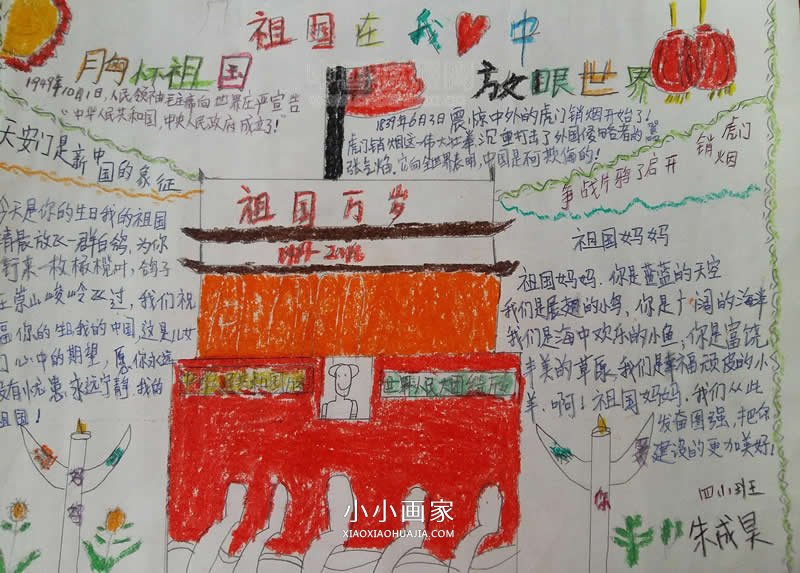 祖国在我中
胸怀祖国
放眼世界
1949年10月1日,人民领袖毛主席向世界庄严宣告
“中华人民共和国,中央人民政府成立了!”
1839年6月3日震惊中外的虎门销烟开始了!
虎门销烟这一伟大壮举沉重打击了外国侵略者的嚣
张气焰,它向全世界表明,中国是不可欺侮的!
天安门是新中国的象征
虎门销烟
争战片鸦了启开
祖国万岁
今天是你的生日我的祖国
清晨放飞一群白鸽,为你
衔来一枚橄榄叶,鸽子
在崇山峻岭飞过,我们祝
福你的生日我的中国,这是儿女
们心中的期望,愿你永远
没有忧患,永远宁静.我的
祖国!
祖国妈妈
祖国妈妈.你是蓝蓝的天空
我们是展翅的小鸟,你是广阔的海洋
我们是海中欢乐的小鱼;你是富饶
丰美的草原,我们是幸福顽皮的小
羊.啊!祖国妈妈,我们从此
发奋图强,把你
建设的更加美好!
世界人民大团结万
你
四小班
朱成昊
小小画家
XIAOXIAOHUAJIA.COM